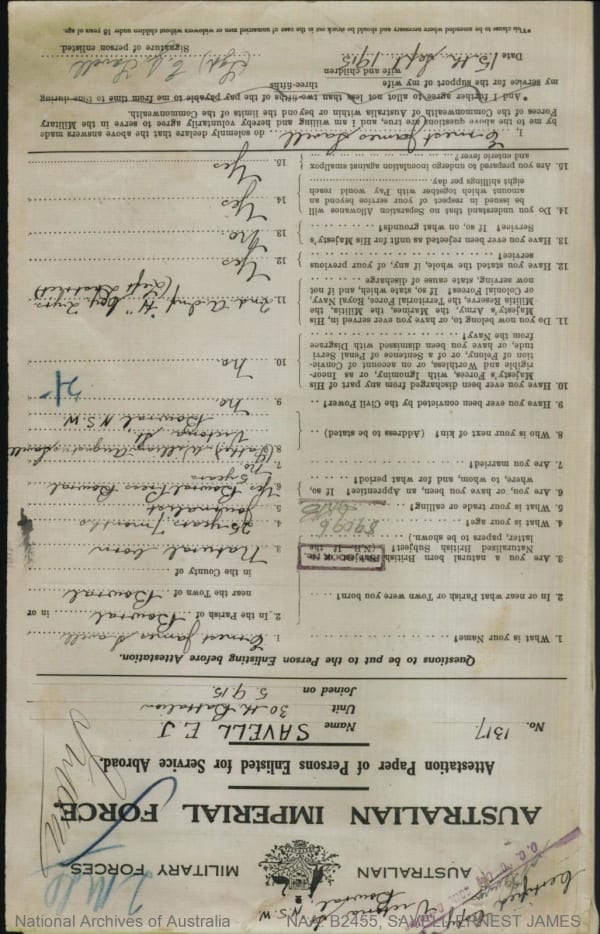 AUSTRALIAN MILITARY FORCES
AUSTRALIAN IMPERIAL FORCE.
Attestation Paper of Persons Enlisted for Service Abroad.
No. 1317 Name SAVELL E. J
Unit 30th Battalion
Joined on 5.9.15.
Questions to be put to the Person Enlisting before Attestation.
1. What is your Name? 1. Ernest James Savell
2. In or near what Parish or Town were you born? 2. In the Parish of Bowral in or
near the Town of Bowral
in the County of
3. Are you a natural born British Subject or a
Naturalised British Subject? (N.B.—If the
latter, papers to be shown.) 3. Natural born
4. What is your age? 4. 25 years 7 months
5. What is your trade or calling? 5. Journalist
6. Are you, or have you been, an Apprentice? If so,
where, to whom, and for what period? 6. Yes Bowral Press Bowral
5 years
7. Are you married? 7. No
8. Who is your next of kin? (Address to be stated) 8. (Father) William August Savell
Victoria St
Bowral N.S.W
9. Have you ever been convicted by the Civil Power? 9. No
10. Have you ever been discharged from any part of His
Majesty's Forces, with Ignominy, or as Incor-
rigible and Worthless, or on account of Convic-
tion of Felony, or of a Sentence of Penal Servi-
tude, or have you been dismissed with Disgrace
from the Navy? 10. No
11. Do you now belong to, or have you ever served in, His
Majesty's Army, the Marines, the Militia, the
Militia Reserve, the Territorial Force, Royal Navy,
or Colonial Forces? If so, state which, and if not
now serving, state cause of discharge 11.
12. Have you stated the whole, if any, of your previous
service? 12. Yes
13. Have you ever been rejected as unfit for His Majesty's
Service? If so, on what grounds? 13. No
14. Do you understand that no Separation Allowance will
be issued in respect of your service beyond an
amount which together with Pay would reach
eight shillings per day 14. Yes
15. Are you prepared to undergo inoculation against smallpox
and enteric fever? 15. Yes
I, Ernest James Savell do solemnly declare that the above answers made
by me to the above questions are true, and I am willing and hereby voluntarily agree to serve in the Military
Forces of the Commonwealth of Australia within or beyond the limits of the Commonwealth.
*And I further agree to allot not less than two-fifths of the pay payable to me from time to time during
three-fifths
my service for the support of my wife
wife and children
Date 15th Sept 1915 (Sgd) E J Savell
Signature of person enlisted.
*This clause to be amended where necessary and should be struck out in the case of unmarried men or widowers without children under 18 years of age.
Certified Copy
Victoria St
Bowral
N.S.W
89096
National Archives of Australia NAA: B2455, SAVELL ERNEST JAMES